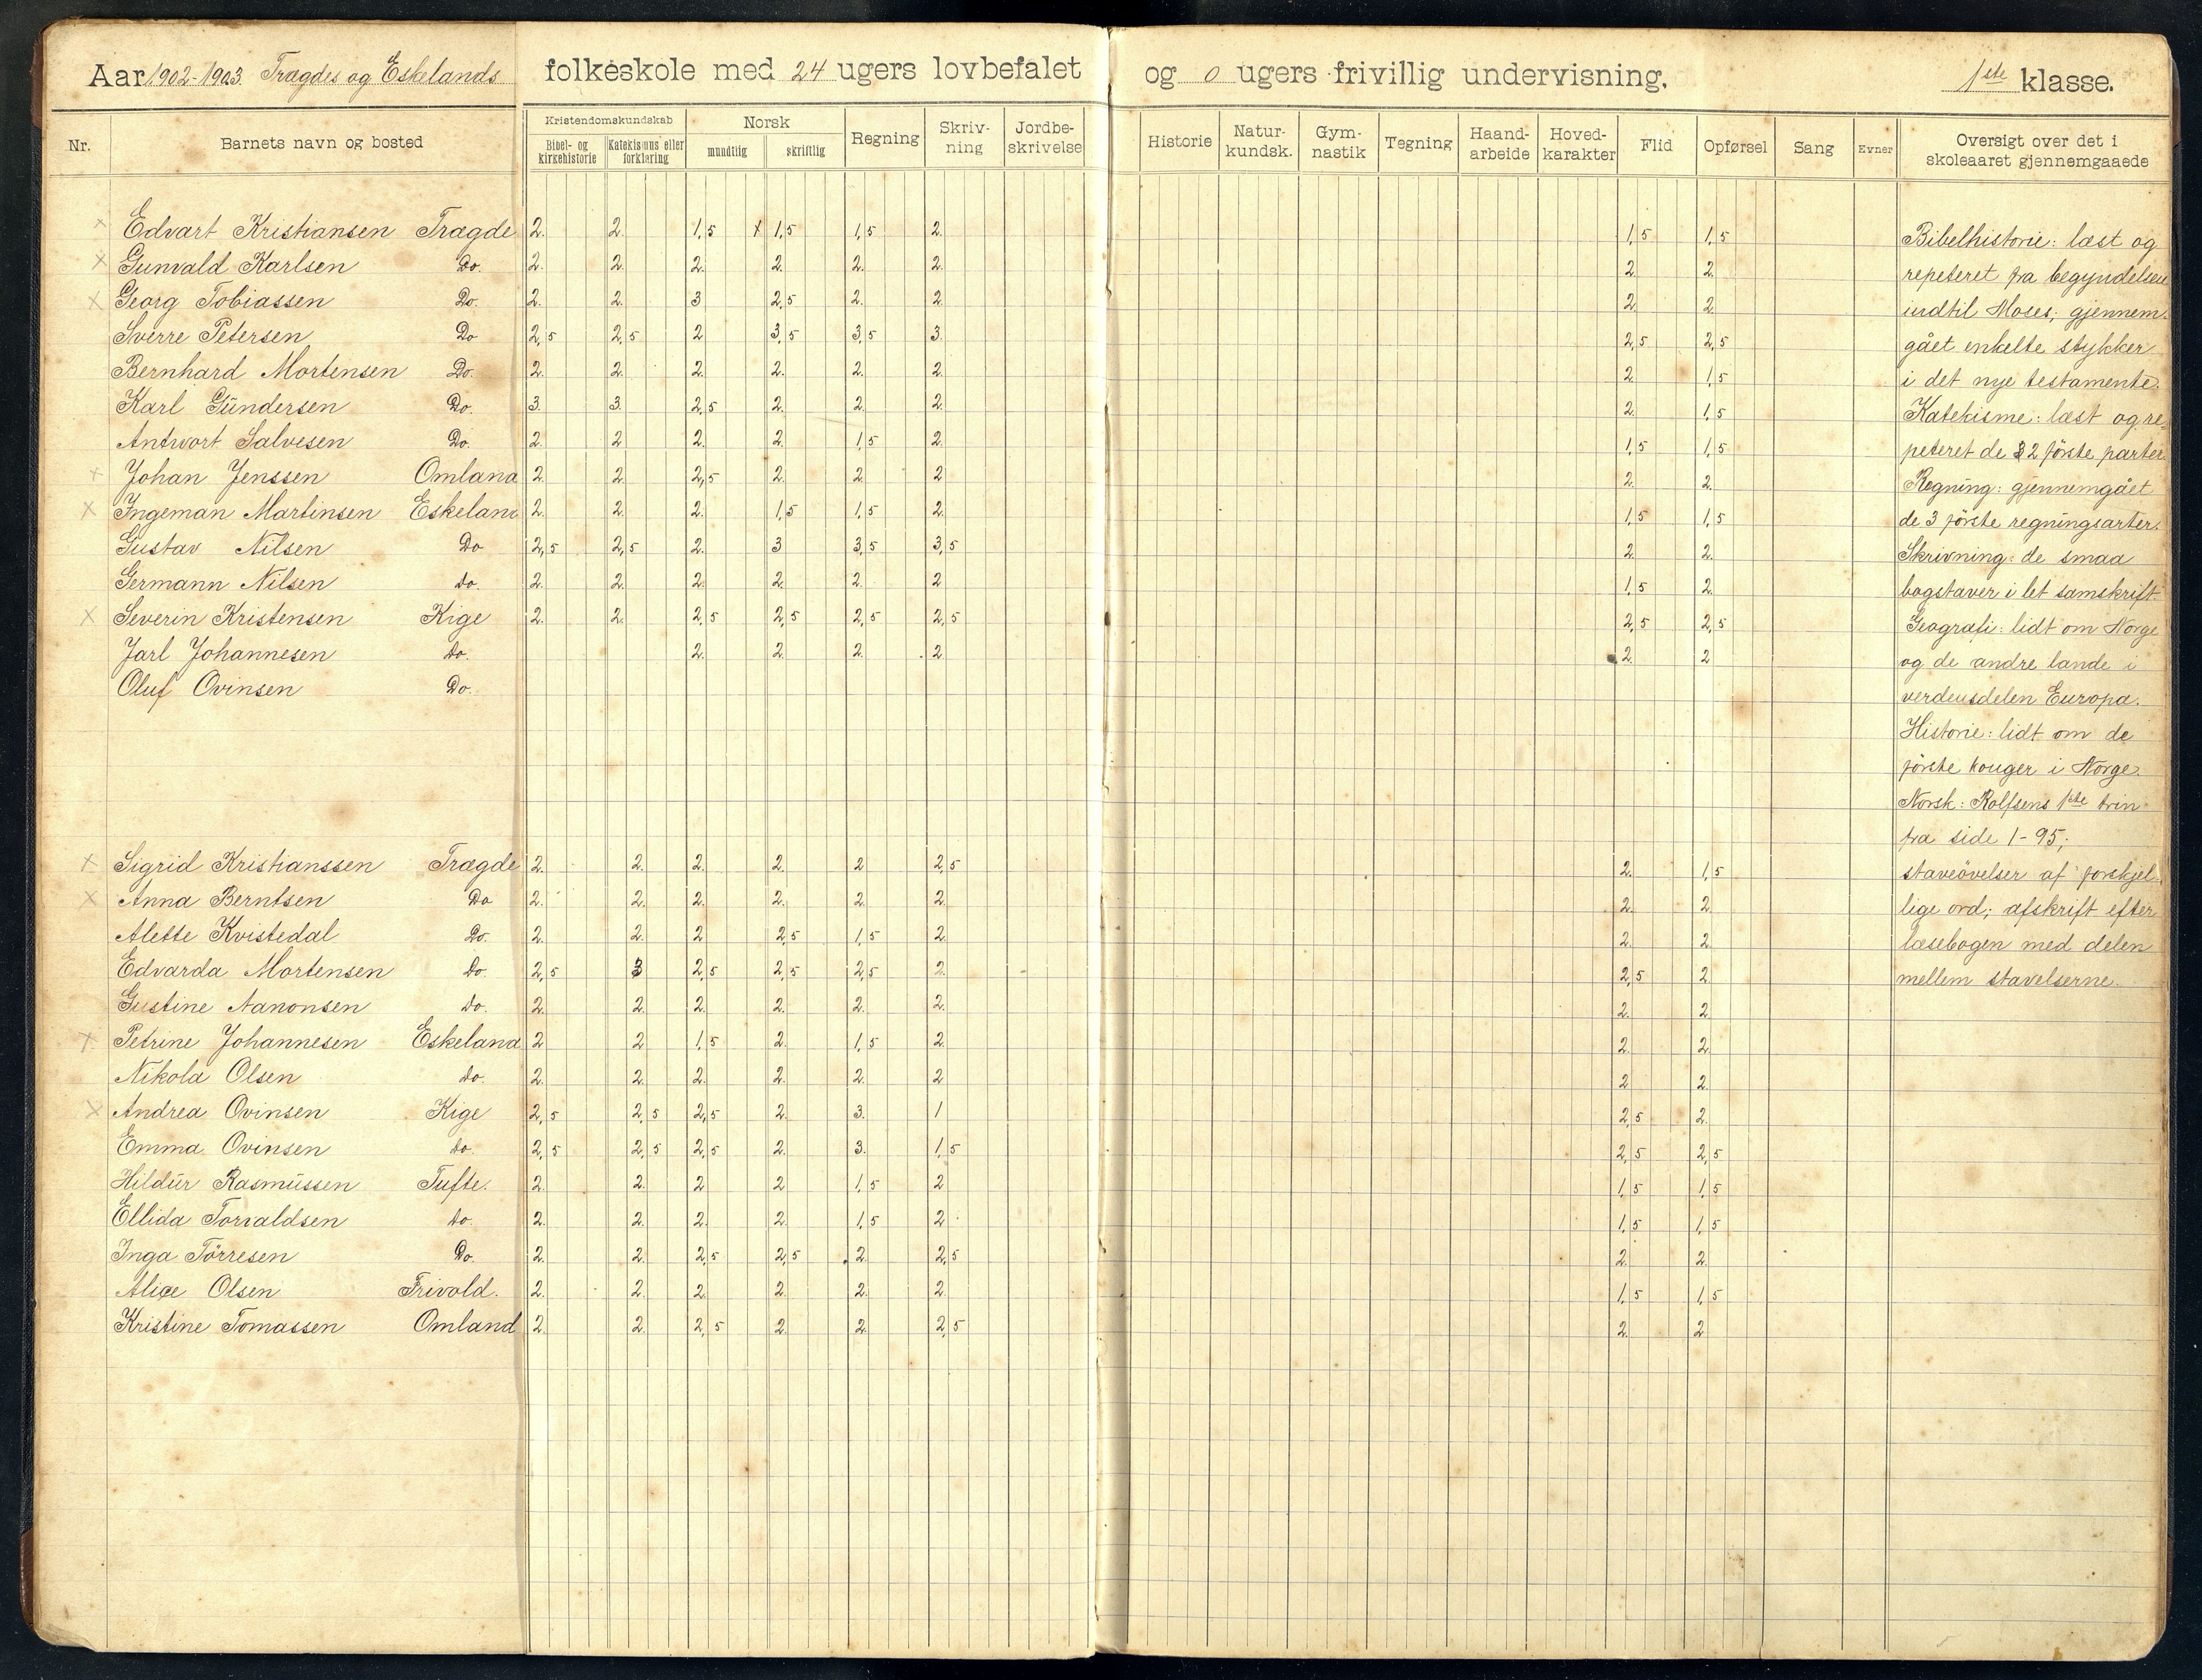 Aar 1902-1903 Trægdes og Eskelands folkeskole med 24 ugers lovbefalet og 0 ugers frivillig undervisning. 1ste klasse.
Nr. Barnets navn og bosted Kristendomskundskab Bibel- og kirkehistorie Katekismus eller forklaring Norsk mundtlig skriftlig Regning Skriv-ning Jordbe-skrivelse Historie Natur-kundsk. Gym-nastik Tegning Haand-arbeide Hoved-karakter Flid Opførsel Sang Evner Oversigt over det i skoleaaret gjennemgaaede
x Edvart Kristiansen Trægde 2. 2. 1,5 x 1,5 1,5 2. 1,5 1,5
x Gunvald Karlsen Do. 2. 2. 2. 2. 2. 2. 2. 2.
x Georg Tobiassen Do. 2. 2. 3 2,5 2. 2. 2. 2.
Sverre Petersen Do 2,5 2,5 2 3,5 3,5 3. 2,5 2,5
Bernhard Mortensen Do. 2. 2. 2. 2. 2. 2. 2. 1,5
Karl Gündersen Do. 3. 3. 2,5 2. 2. 2. 2. 1,5
Antwort Salvesen Do. 2. 2 2. 2. 1,5 2. 1,5 1,5
x Johan Jenssen Omland 2. 2. 2,5 2. 2. 2 2. 2.
x Ingeman Martinsen Eskeland 2. 2. 2. 1,5 1,5 2. 1,5 1,5
Gustav Nilsen Do 2,5 2,5 2. 3 3,5 3,5 2. 2.
Germann Nilsen do. 2. 2. 2. 2. 2. 2 1,5 2.
x Severin Kristensen Kige 2. 2. 2,5 2,5 2,5 2,5 2,5 2,5
Jarl Johannesen do. 2. 2. 2. 2. 2. 2
Oluf Ovinsen Do.
x Sigrid Kristianssen Trægde 2. 2. 2. 2. 2 2,5 2. 1,5
x Anna Berntsen Do 2. 2. 2. 2. 2. 2. 2. 2.
Alette Kvistedal Do. 2. 2. 2 2,5 1,5 2. 2. 2.
Edvarda Mortensen Do. 2,5 3 2,5 2,5 2,5 2. 2,5 2.
Gustine Aanonsen do. 2. 2. 2. 2. 2. 2. 2. 2.
x Petrine Johannesen Eskeland 2 2 1,5 2. 1,5 2. 2. 2.
Nikola Olsen do. 2. 2. 2. 2. 2. 2 2 2.
x Andrea Ovinsen Kige 2,5 2,5 2,5 2. 3. 1 2,5 2.
Emma Ovinsen do. 2,5 2,5 2,5 2. 3. 1,5 2,5 2,5
Hildür Rasmüssen Tufte. 2. 2. 2 2 1,5 2 1,5 1,5
Ellida Torvaldsen do. 2. 2. 2. 2. 1,5 2. 1,5 1,5
Inga Törresen Do. 2. 2. 2,5 2,5 2. 2,5 2. 2.
Alice Olsen Frivold. 2. 2. 2. 2. 2. 2. 1,5 1,5
Kristine Tomassen Omland 2. 2. 2,5 2. 2. 2,5 2. 2
Bibelhistorie: læst og
repeteret fra begyndelsen
indtil Moses; gjennem-
gået enkelte stykker
i det nye testamente.
Katekisme: læst og re-
peteret de 2 förste parter.
Regning: gjennemgået
de 3 förste regningsarter.
Skrivning: de smaa
bogstaver i let samskrift
Geografi: lidt om Norge
og de andre lande i
verdensdelen Europa.
Historie: lidt om de
förste konger i Norge.
Norsk: Rolfsens 1ste trin
fra side 1-95;
staveövelser af forskjel-
lige ord; afskrift efter
læsebogen med delen
mellem stavelserne.